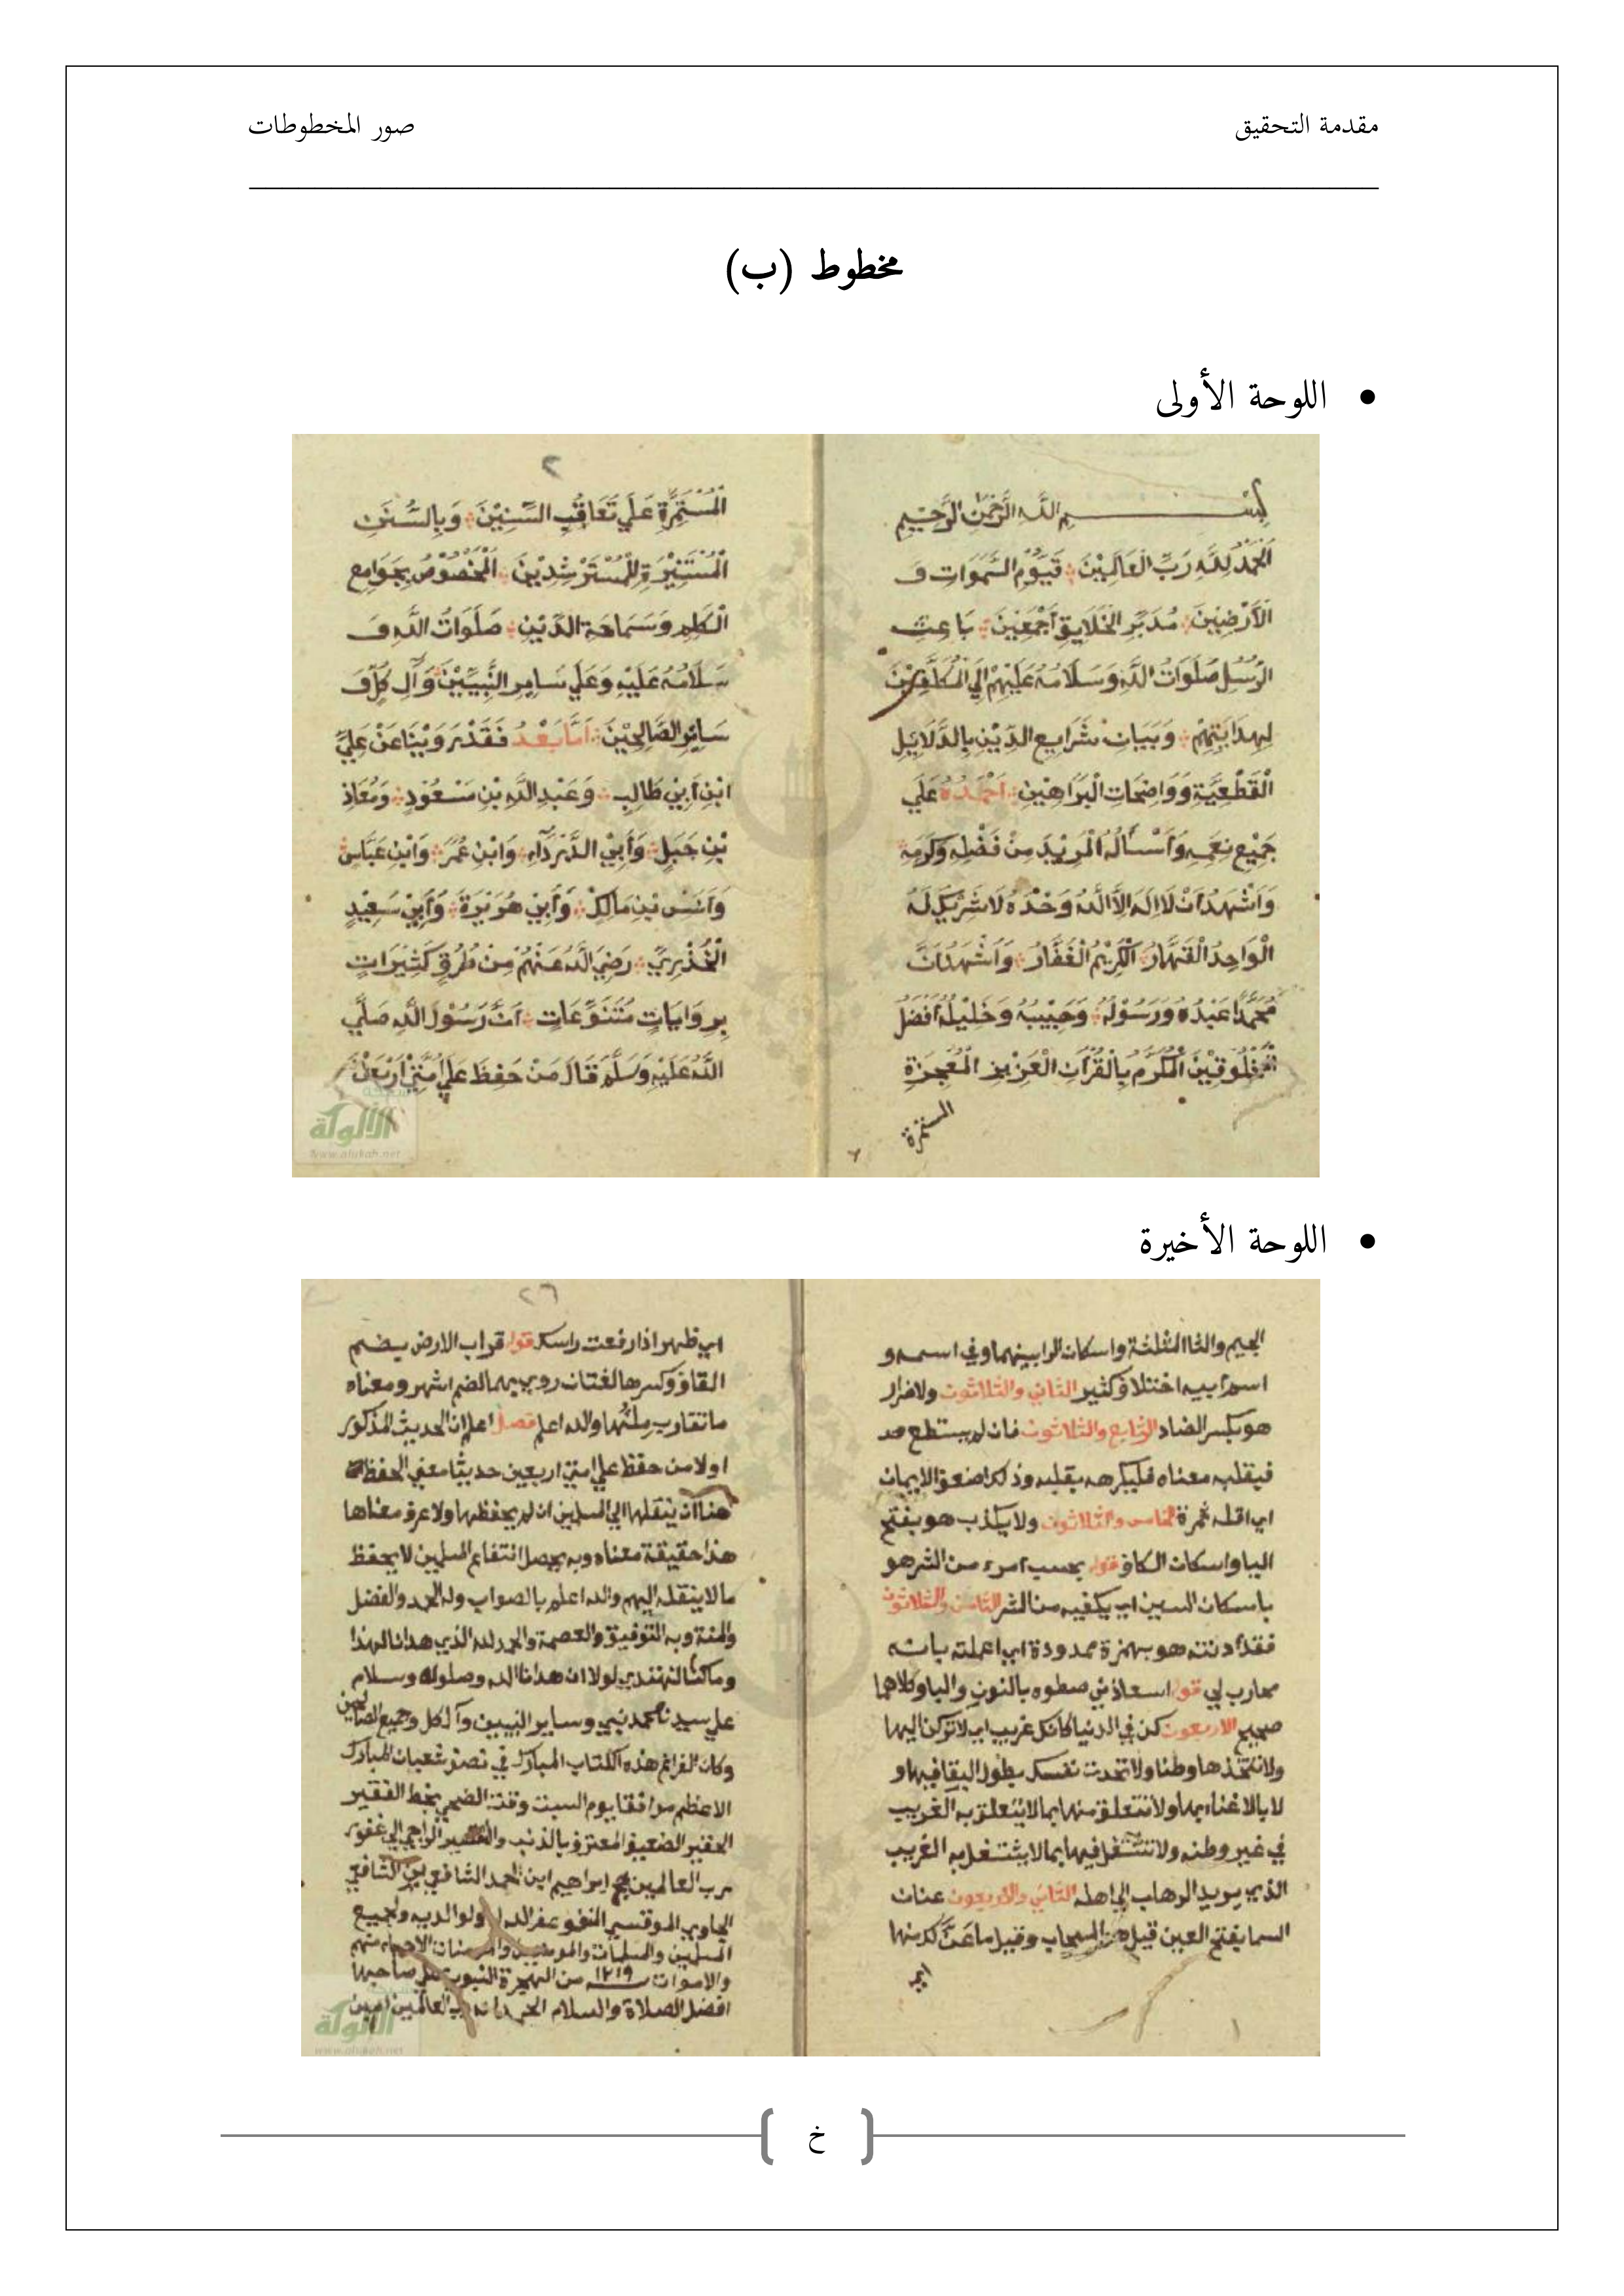 مقدمة التحقيق
صور المخطوطات
مخطوط (ب)
• اللوحة الأولى
بسم الله الرحمن الرحيم
اَلْحَمْدُ لِلّهِ رَبِّ الْعَالَمِيْنَ قَيُّوْمِ السَّمَوَاتِ وَ
الْاَرْضِيْنَ مُدَبِّرِ الْخَلَايِقِ اَجْمَعِيْنَ بَاعِثِ
الرُّسُلِ صَلَوَاتُ اللهِ وَسَلَامُهُ عَلَيْهِمْ اِلَي الْمُكَلَّفِيْنَ
لِهِدَايَتِهِمْ وَبَيَانِ شَرَايِعِ الدِّيْنِ بِالدَّلَايِلِ
الْقَطْعِيَّةِ وَوَاضِحَاتِ الْبَرَاهِيْنِ اَحْمَدُهُ عَلَي
جَمِيْعِ نِعَمِهِ وَاَسْأَلُهُ الْمَزِيْدَ مِنْ فَضْلِهِ وَكَرَمِهِ
وَاَشْهَدُ اَنْ لَا اِلَهَ اِلَّا اللهُ وَحْدَهُ لَا شَرِيْكَ لَهُ
الْوَاحِدُ الْقَهَّارُ الْكَرِيْمُ الْغَفَّارُ وَاَشْهَدُ اَنَّ
مُحَمَّدًا عَبْدُهُ وَرَسُوْلُهُ وَحَبِيْبُهُ وَخَلِيْلُهُ اَفْضَلُ
الْمَخْلُوقِيْنَ الْمُكَرَّمُ بِالْقُرْآنِ الْعَزِيْزِ الْمُعْجِزَةِ
المستمرة
٢
الْمُسْتَمِرَّةِ عَلَي تَعَاقُبِ السِّنِيْنَ وَبِالسُّنَنِ
الْمُسْتَنِيْرَةِ لِلْمُسْتَرْشِدِيْنَ الْمَخْصُوْصُ بِجَوَامِعِ
الْكَلِمِ وَسَمَاحَةِ الدِّيْنِ صَلَوَاتُ اللهِ وَ
سَلَامُهُ عَلَيْهِ وَعَلَي سَايِرِ النَّبِيِّيْنَ وَآلِ كُلٍّ وَ
سَايِرِ الصَّالِحِيْنَ اَمَّا بَعْدُ فَقَدْ رَوَيْنَا عَنْ عَلِيِّ
ابْنِ اَبِيْ طَالِبٍ وَعَبْدِ اللهِ بْنِ مَسْعُوْدٍ وَمُعَاذِ
بْنِ جَبَلٍ وَاَبِيْ الدَّرْدَآءِ وَابْنِ عُمَرَ وَابْنِ عَبَّاسٍ
وَاَنَسْ بْنِ مَالِكْ وَاَبِيْ هُرَيْرَةَ وَاَبِيْ سَعِيْدٍ
الْخُدْرِيِّ رَضِيَ اللهُ عَنْهُمْ مِنْ طُرُقٍ كَثِيْرَاتٍ
بِرِوَايَاتٍ مُتَنَوِّعَاتٍ اَنَّ رَسُوْلَ اللهِ صَلَّي
اللهُ عَلَيْهِ وَسَلَّمَ قَالَ مَنْ حَفِظَ عَلَي اُمَّتِيْ اَرْبَعِيْنَ
الألوكة
www.alukah.net
• اللوحة الأخيرة
الجيم والثا المثلثة واسكان الرا بينهما وفي اسمه و
اسم ابيه اختلاف كثير الثاني والثلاثون ولا ضرار
هو بكسر الضاد الرابع والثلاثون فان لم يستطع
فبقلبه معناه فليكرهه بقلبه وذلك اضعف الايمان
اي اقله ثمرة الخامس والثلاثون ولا يكذب هو بفتح
اليا واسكان الكاف قوله بحسب امرء من الشر هو
باسكان السين اي يكفيه من الشر الثامن والثلاثون
فقد آذنته هو بهمزة ممدودة اي اعلمته بانه
محارب لي قوله استعاذني ضطوه بالنون والبا وكلاهما
صحيح الاربعون كن في الدنيا كانك غريب اي لا تركن اليها
ولا تتخذها وطنا ولا تحدث نفسك بطول البقا فيها و
لا بالاعتناء بها ولا تتعلق منها بما لا يتعلق به الغريب
في غير وطنه ولا تشتغل فيها بما لا يشتغل به الغريب
الذي يريد الذهاب الي اهله الثاني والاربعون عنان
السما بفتح العين قيل هو السحاب وقيل ما عَنَّ لك منها
اي
٢٦
اي ظهر اذا رفعت راسك قوله قراب الارض بضم
القاف وكسرها لغتان روي بهما الضم اشهر ومعناه
ما تقارب ملئها والله اعلم فصل اعلم ان الحديث المذكور
اولا من حفظ علي امتي اربعين حديثا معني الحفظ
هنا ان ينقلها الي المسلمين ان لم يحفظها ولا عرف معناها
هذا حقيقة معناه وبه يحصل انتفاع المسلمين لا بحفظ
ما لا ينقله اليهم والله اعلم بالصواب وله الحمد والفضل
والمنة وبه التوفيق والعصمة والحمد لله الذي هدانا لهذا
وما كنا لنهتدي لولا ان هدانا الله وصلواته وسلام
علي سيدنا محمد نبي وساير النبيين وآل كل وجميع الصالحين
وكان الفراغ هذه الكتاب المبارك في نصف شعبان المبارك
الاعظم موافقا يوم السبت وقت الضحي بخط الفقير
الحقير الضعيف المعترف بالذنب والتقصير الراجي الي غفور
رب العالمين ابراهيم ابن احمد الشافعي
غفر الله له ولوالديه ولجميع
المسلمين والمسلمات والمومنين والمومنات الاحياء منهم
والاموات ١٢١٩ من الهجرة النبوية علي صاحبها
افضل الصلاة والسلام الحمد لله رب العالمين امين
الألوكة
www.alukah.net
خ